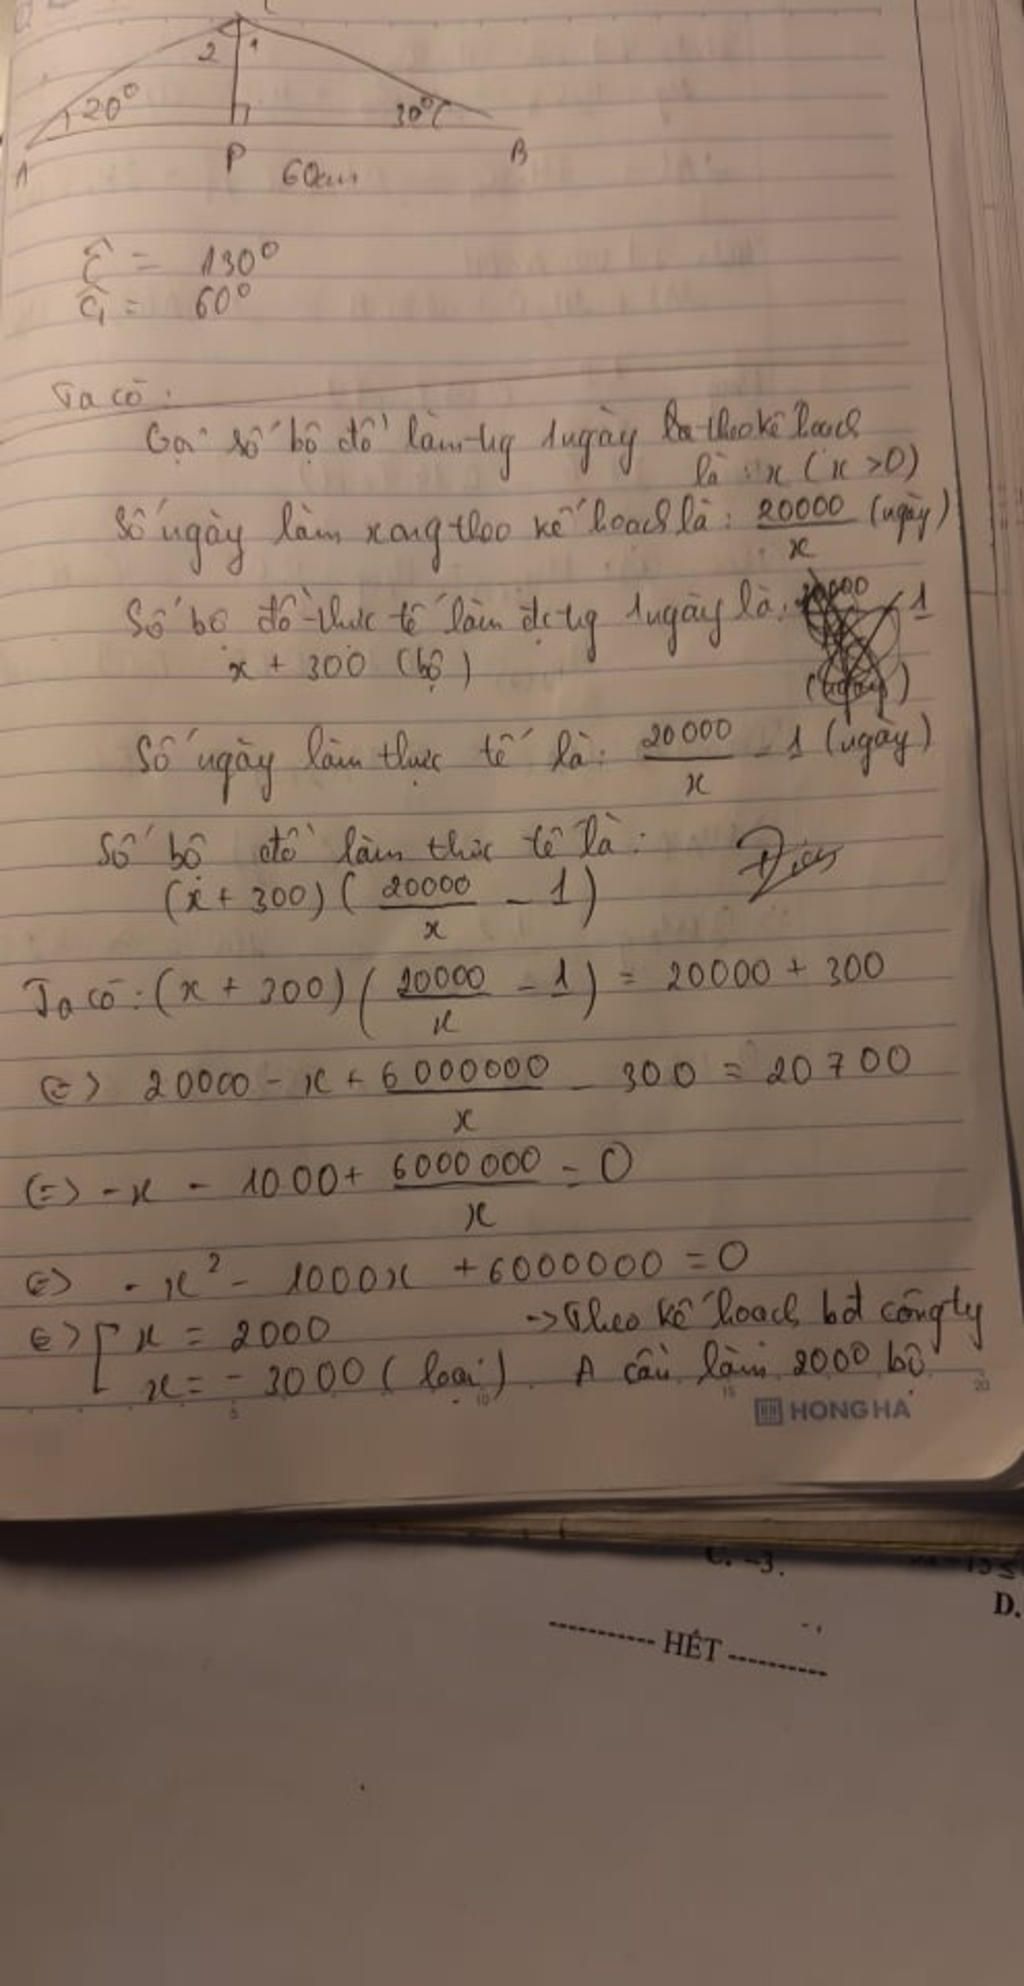 2 1
20° 30°
A P B
60cm
Ĉ = 130°
Ĉ₁ = 60°
Ta có:
Gọi số bộ đồ làm tg 1 ngày theo kế hoạch
là: x (x >0)
Số ngày làm xong theo kế hoạch là: 20000/x (ngày)
Số bộ đồ thực tế làm đc tg 1 ngày là:
x + 300 (bộ)
Số ngày làm thực tế là: 20000/x - 1 (ngày)
Số bộ đồ làm thực tế là:
(x + 300) (20000/x - 1)
Ta có: (x + 300) (20000/x - 1) = 20000 + 300
(=) 20000 - x + 6000000/x - 300 = 20700
(=) -x - 1000 + 6000000/x = 0
(=) -x² - 1000x + 6000000 = 0
(=) [ x = 2000 -> Theo kế hoạch bđ công ty
x = -3000 (loại). A cần làm 2000 bộ.
5 10 15 20
HONG HA
C. -3.
D.
----------- HẾT -----------